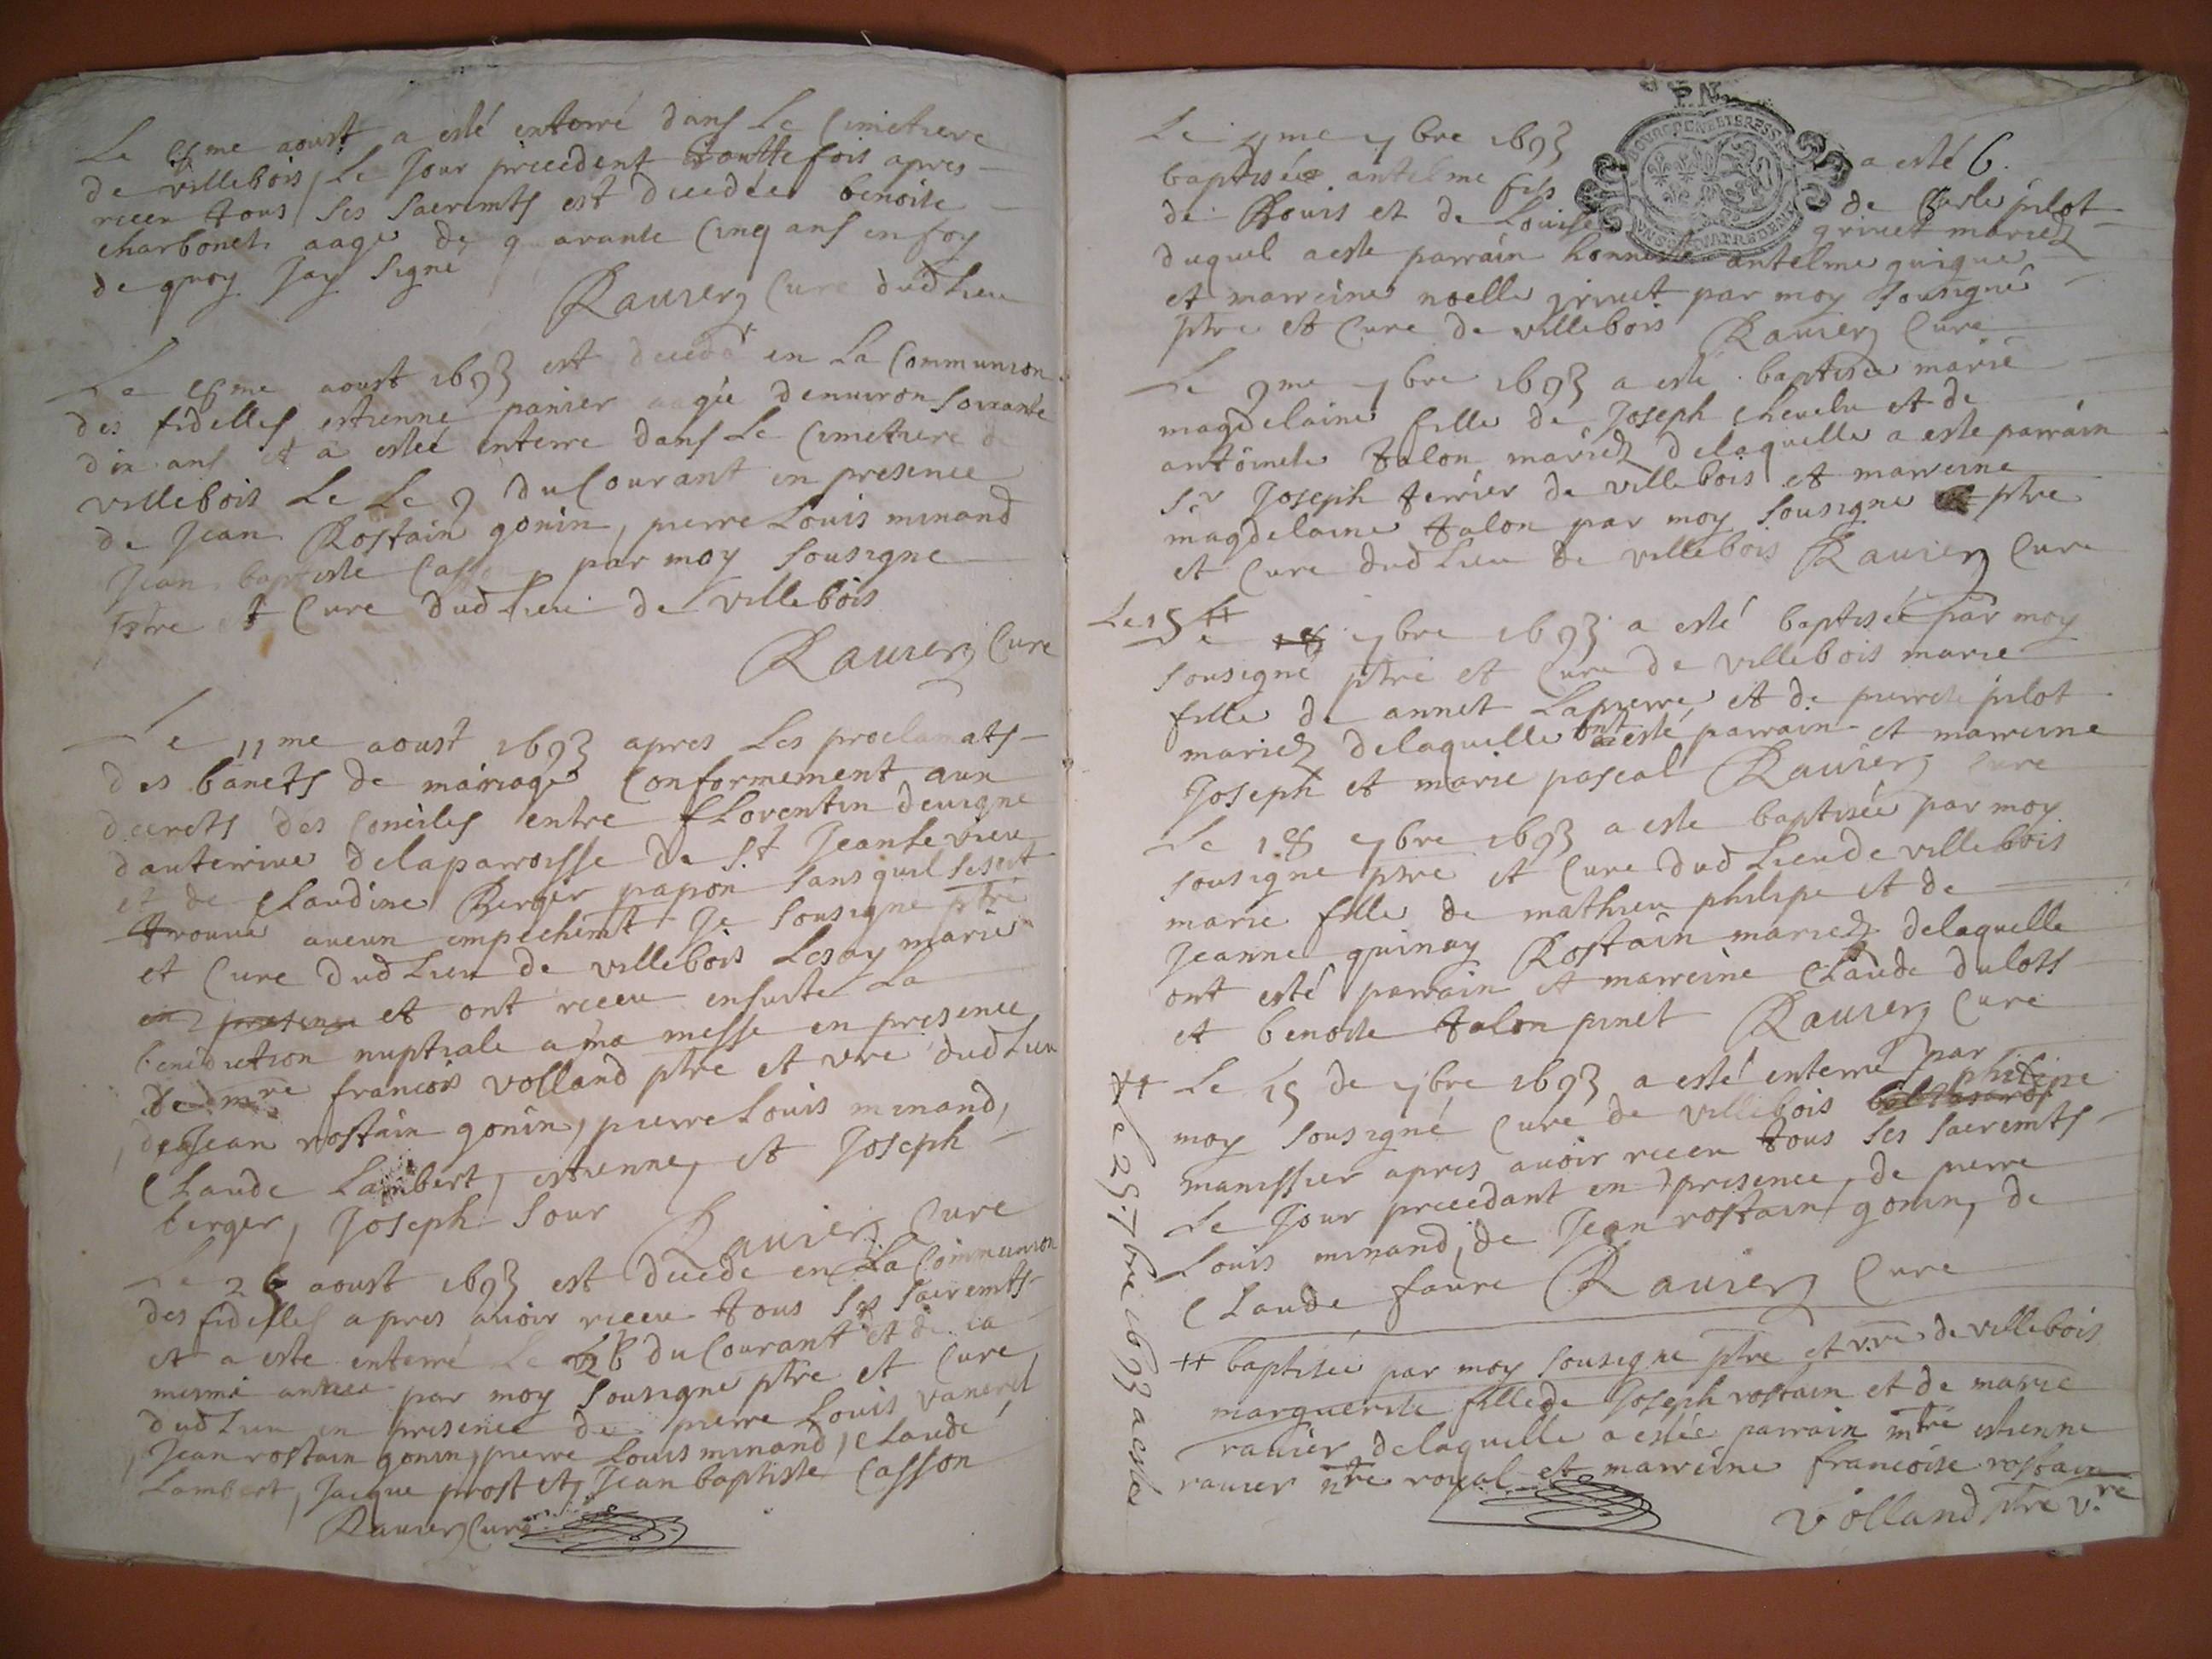 Le 8me aoust a esté enterré dans Le Cimetiere
de villebois, Le Jour precedent touttefois apres
receu tous ses sacremts est decedée benoite
charbonet aage de quarante Cinq ans en foy
de quoy Jay signé
Rauier Cure dud Lieu
Le 8me aoust 1693 est decedé en La Communion
des fidelles estienne panier aagée denuiron soixante
dix ans et a estée enterre dans Le Cimetiere de
villebois Le Le 9 du Courant en presence
de Jean Rostain gonin, pierre Louis minand
Jean baptiste Casson par moy sousigne
ptre et Cure dud Lieu de villebois
Rauier Cure
Le 11me aoust 1693 apres Les proclamats
des bancts de mariage Conformement aux
decrets des Conciles entre fLorentin deuigne
dauterriue delaparroisse de St Jean Le vieu
et de Claudine Berger papon sans quil se soit
trouué aucun empechemt Je sousigne ptre
et Cure dud Lieu de villebois Lesay marie
en presence et ont receu ensuite La
benediction nuptiale a ma messe en presence
de mre francois volland ptre et vre dud Lieu
de Jean rostain gonin, pierre Louis minand,
Claude Lambert, estienne, et Joseph
berger, Joseph Sour Rauier Cure
Le 26 aoust 1693 est decede en La Communion
des fidelles apres auoir receu tous ses sacremts
et a este enterré Le du Courant et de La
mesme année par moy sousigne ptre et Cure
dud Lieu en presence de pierre Louis vanerel
, Jean rostain gonin, pierre Louis minand, claude
Lambert, Jacque prost et, Jean baptiste Casson
Rauier Cure
F.N.
Le me 7bre 1693 a esté 6.
baptisée antelme fils de Carle pilot
de Rouis et de Louise griuet mariez
duquel a este parrain honneste antelme guigue
et marreine noelle griuet par moy sousigné
ptre et Cure de villebois Rauier Cure
Le 9me 7bre 1693 a esté baptisée marie
magdelaine fille de Joseph cheuelu et de
antoinete talon mariez delaquelle a este parrain
Sr Joseph terrier de villebois et marreine
magdelaine talon par moy sousigne ptre
et Cure dud Lieu de villebois Rauier Cure
Le 15 ++
Le 18 7bre 1693 a esté baptisée par moy
sousigné ptre et Cure de villebois marie
fille de annet Lapierre et de pierrete pilot
mariez delaquelle ont esté parrain et marreine
Joseph et marie pascal Rauier Cure
Le 18 7bre 1693 a este baptisée par moy
sousigne ptre et Cure dud Lieu de villebois
marie fille de mathieu philipe et de
Jeanne quinay Rostain mariez delaquelle
ont esté parrain et marreine Claude dulots
et benoite talon pinet Rauier Cure
++ Le 15 de 7bre 1693 a esté enterré par
moy sousigné Cure de villebois philipe
manissier apres auoir receu tous ses sacremts
Le Jour precedant en presence de pierre
Louis minand, de Jean rostain gonin, de
Claude faure Rauier Cure
++ Le 25 7bre 1693 a este
++ baptisée par moy sousigne ptre et vre de villebois
marguerite fille de Joseph rostain et de marie
rauier delaquelle a estée parrain mtre estienne
rauier ntre royal et marreine francoise rostain
Volland ptre v.re